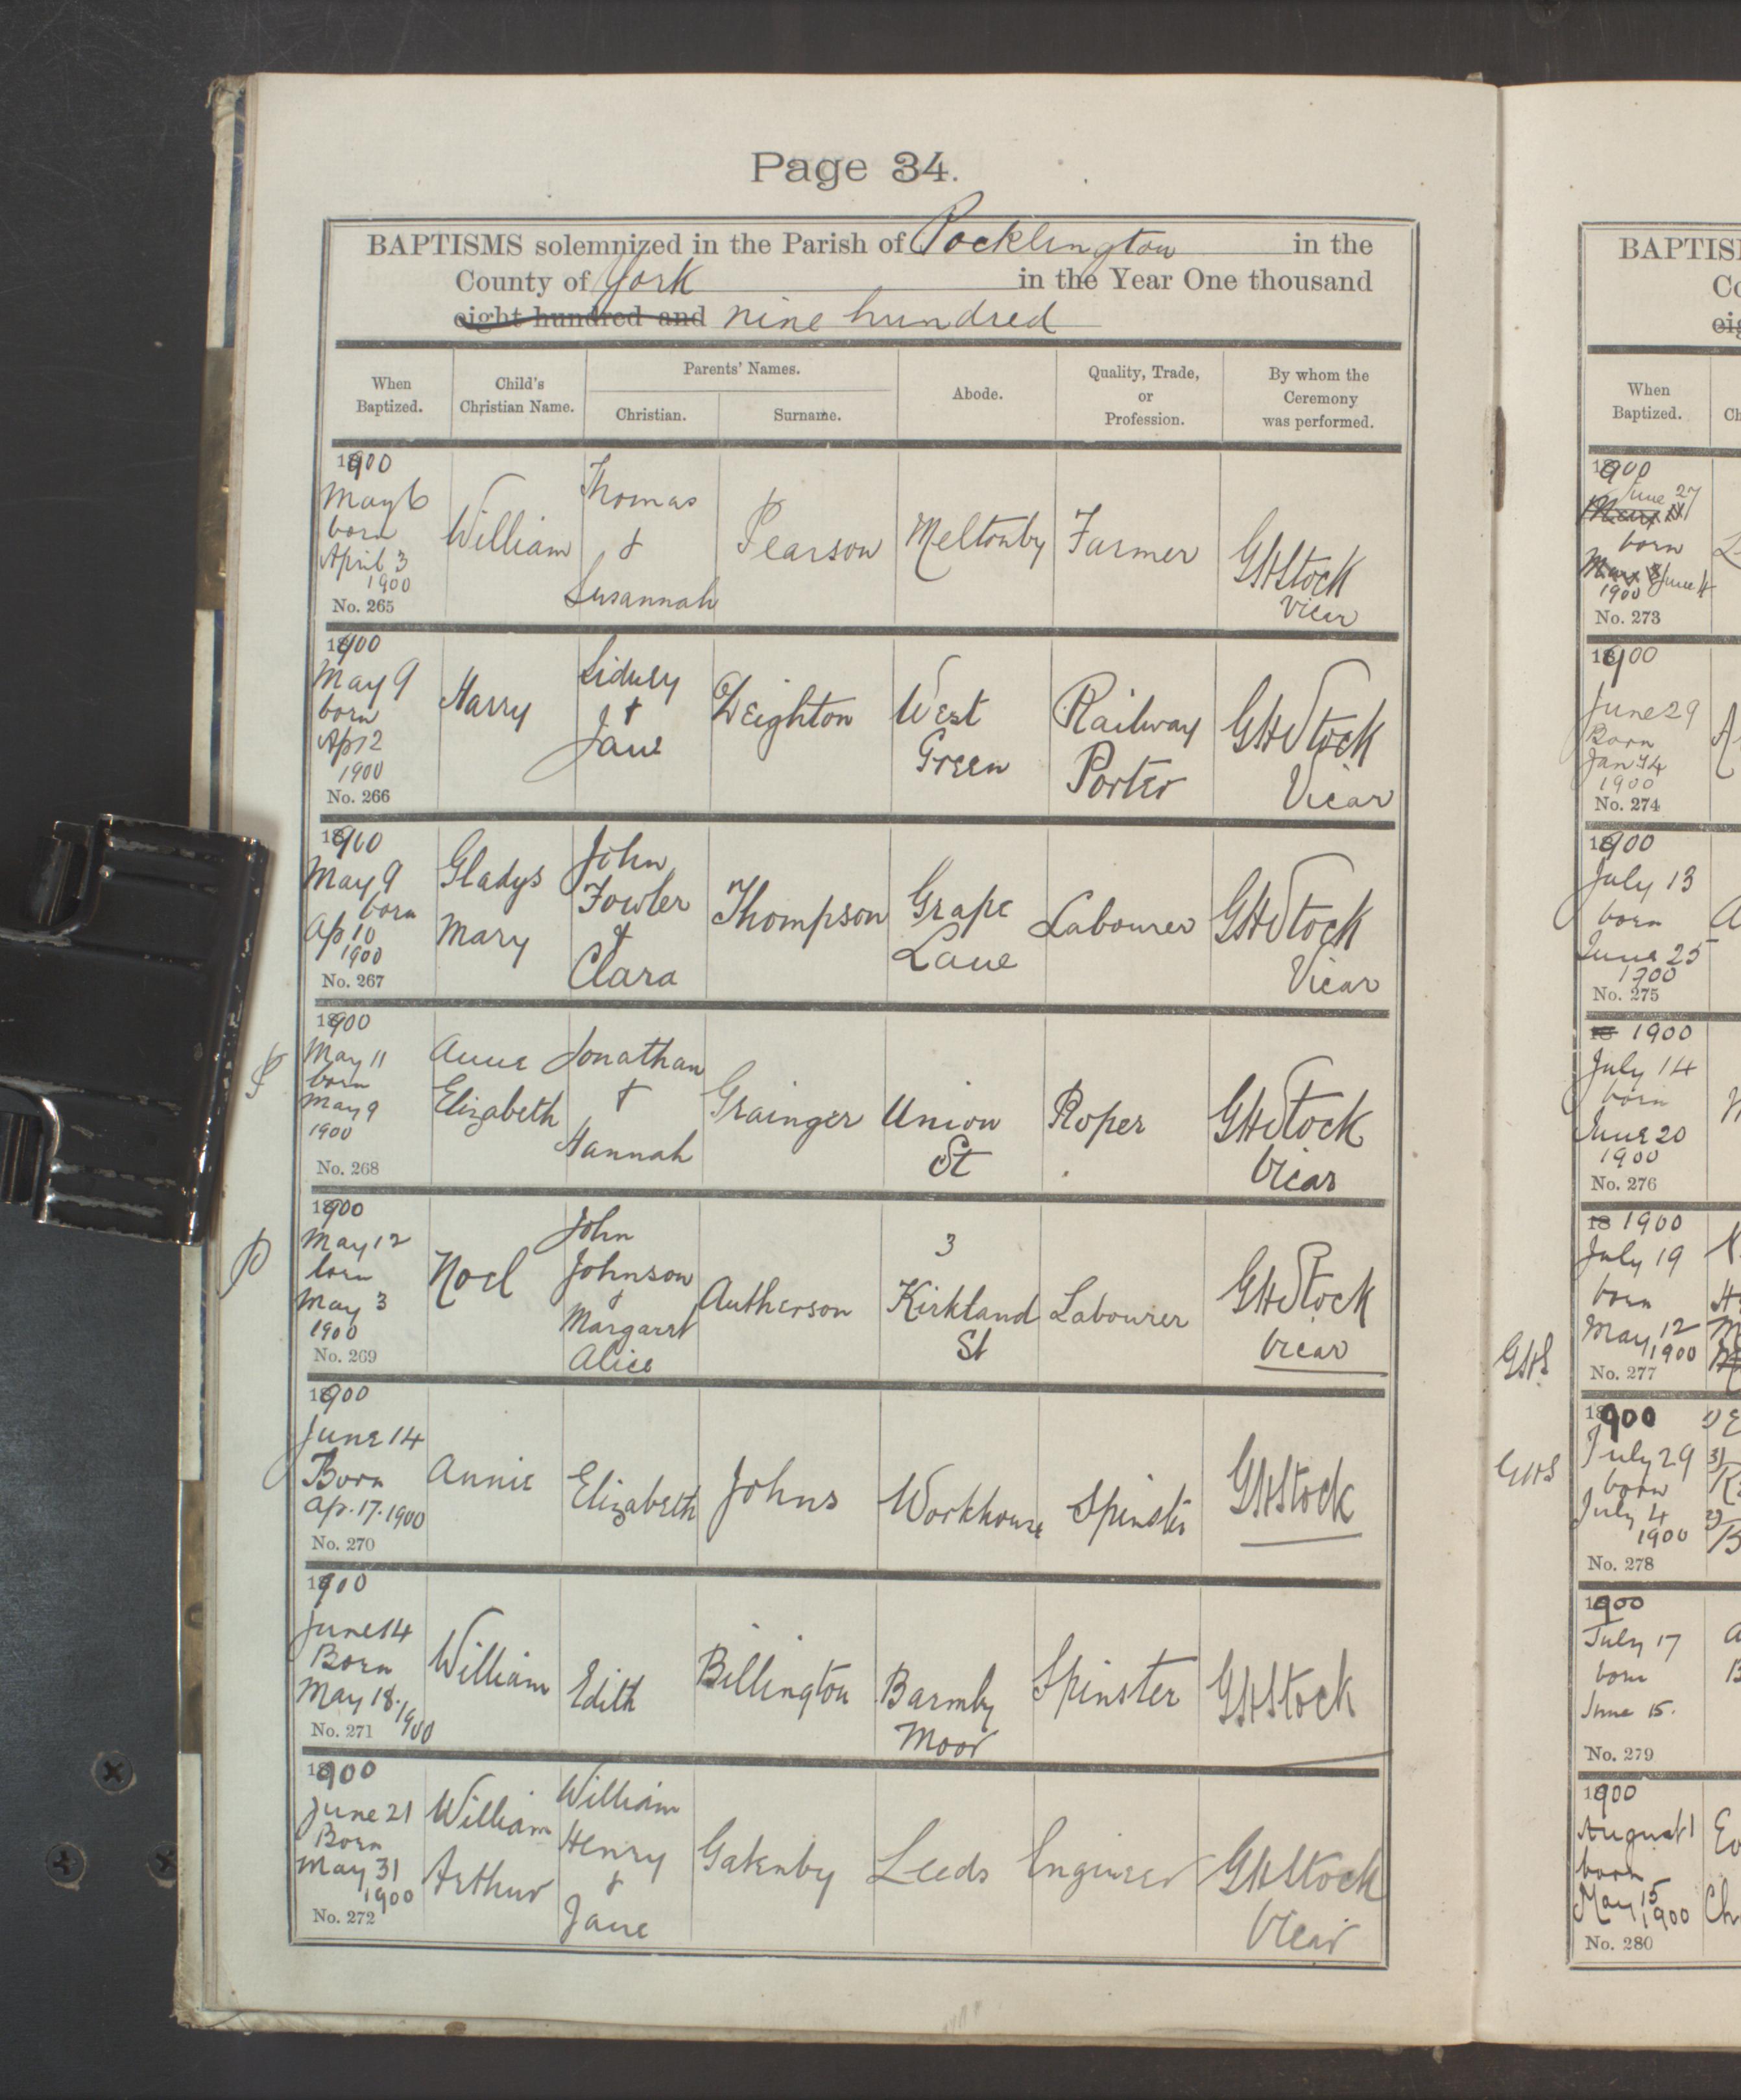 Page 34.
BAPTISMS solemnized in the Parish of Pocklington in the
County of York in the Year One thousand
eight hundred and nine hundred
When
Baptized.
Child's
Christian Name.
Parents' Names.
Christian.
Surname.
Abode.
Quality, Trade,
or
Profession.
By whom the
Ceremony
was performed.
1900
May 6
born
April 3
1900
No. 265
William
Thomas
&
Susannah
Pearson
Meltonby
Farmer
GHStock
Vicar
1900
May 9
born
Ap 12
1900
No. 266
Harry
Sidney
&
Jane
Weighton
West
Green
Railway
Porter
GHStock
Vicar
1900
May 9
born
Ap 10
1900
No. 267
Gladys
Mary
John
Fowler
&
Clara
Thompson
Grape
Lane
Labourer
GHStock
Vicar
P
1900
May 11
born
May 9
1900
No. 268
Anne
Elizabeth
Jonathan
&
Hannah
Grainger
Union
St
Roper
GHStock
Vicar
P
1900
May 12
born
May 3
1900
No. 269
Noel
John
Johnson
&
Margaret
Alice
Autherson
3
Kirkland
St
Labourer
GHStock
Vicar
1900
June 14
Born
Ap. 17. 1900
No. 270
Annie
Elizabeth
Johns
Workhouse
Spinster
GHStock
1900
June 14
Born
May 18. 1900
No. 271
William
Edith
Billington
Barmby
Moor
Spinster
GHStock
1900
June 21
Born
May 31
1900
No. 272
William
Arthur
William
Henry
&
Jane
Gatenby
Leeds
Engineer
GHStock
Vicar
BAPTIS
Co
eig
When
Baptized.
Ch
1900
June 27
born
June 4
1900
No. 273
1900
June 29
Born
Jan 14
1900
No. 274
1900
July 13
born
June 25
1900
No. 275
18 1900
July 14
born
June 20
1900
No. 276
18 1900
July 19
born
May 12
1900
GHS
No. 277
1900
July 29
born
July 4
1900
GHS
No. 278
1900
July 17
born
June 15.
No. 279
1900
August 1
born
May 15
1900
No. 280